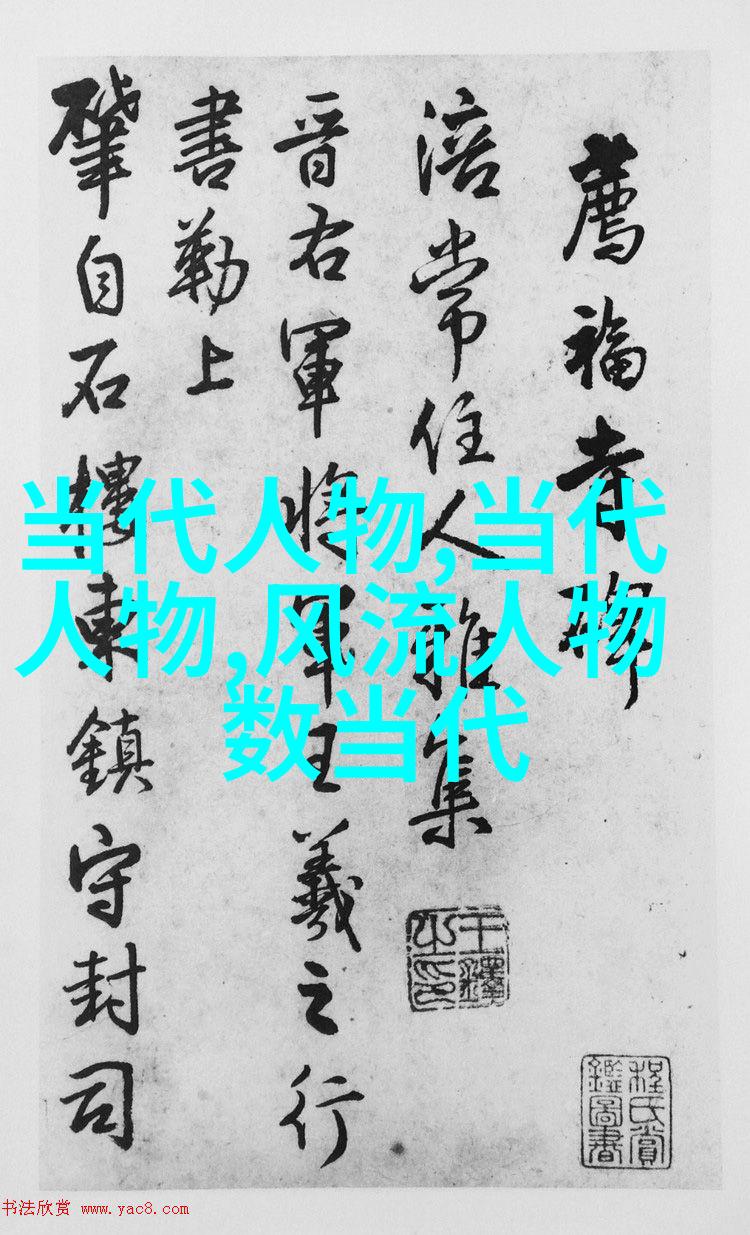 薦福寺
涪常住人雅集
晋右軍将軍王羲之行
書勒上
肇自石樓東鎮守封司
当代人物,当代
人物,风流人物
数当代
王鐸
之印
程氏賞
鑑圖書
书法欣赏 www.yac8.com